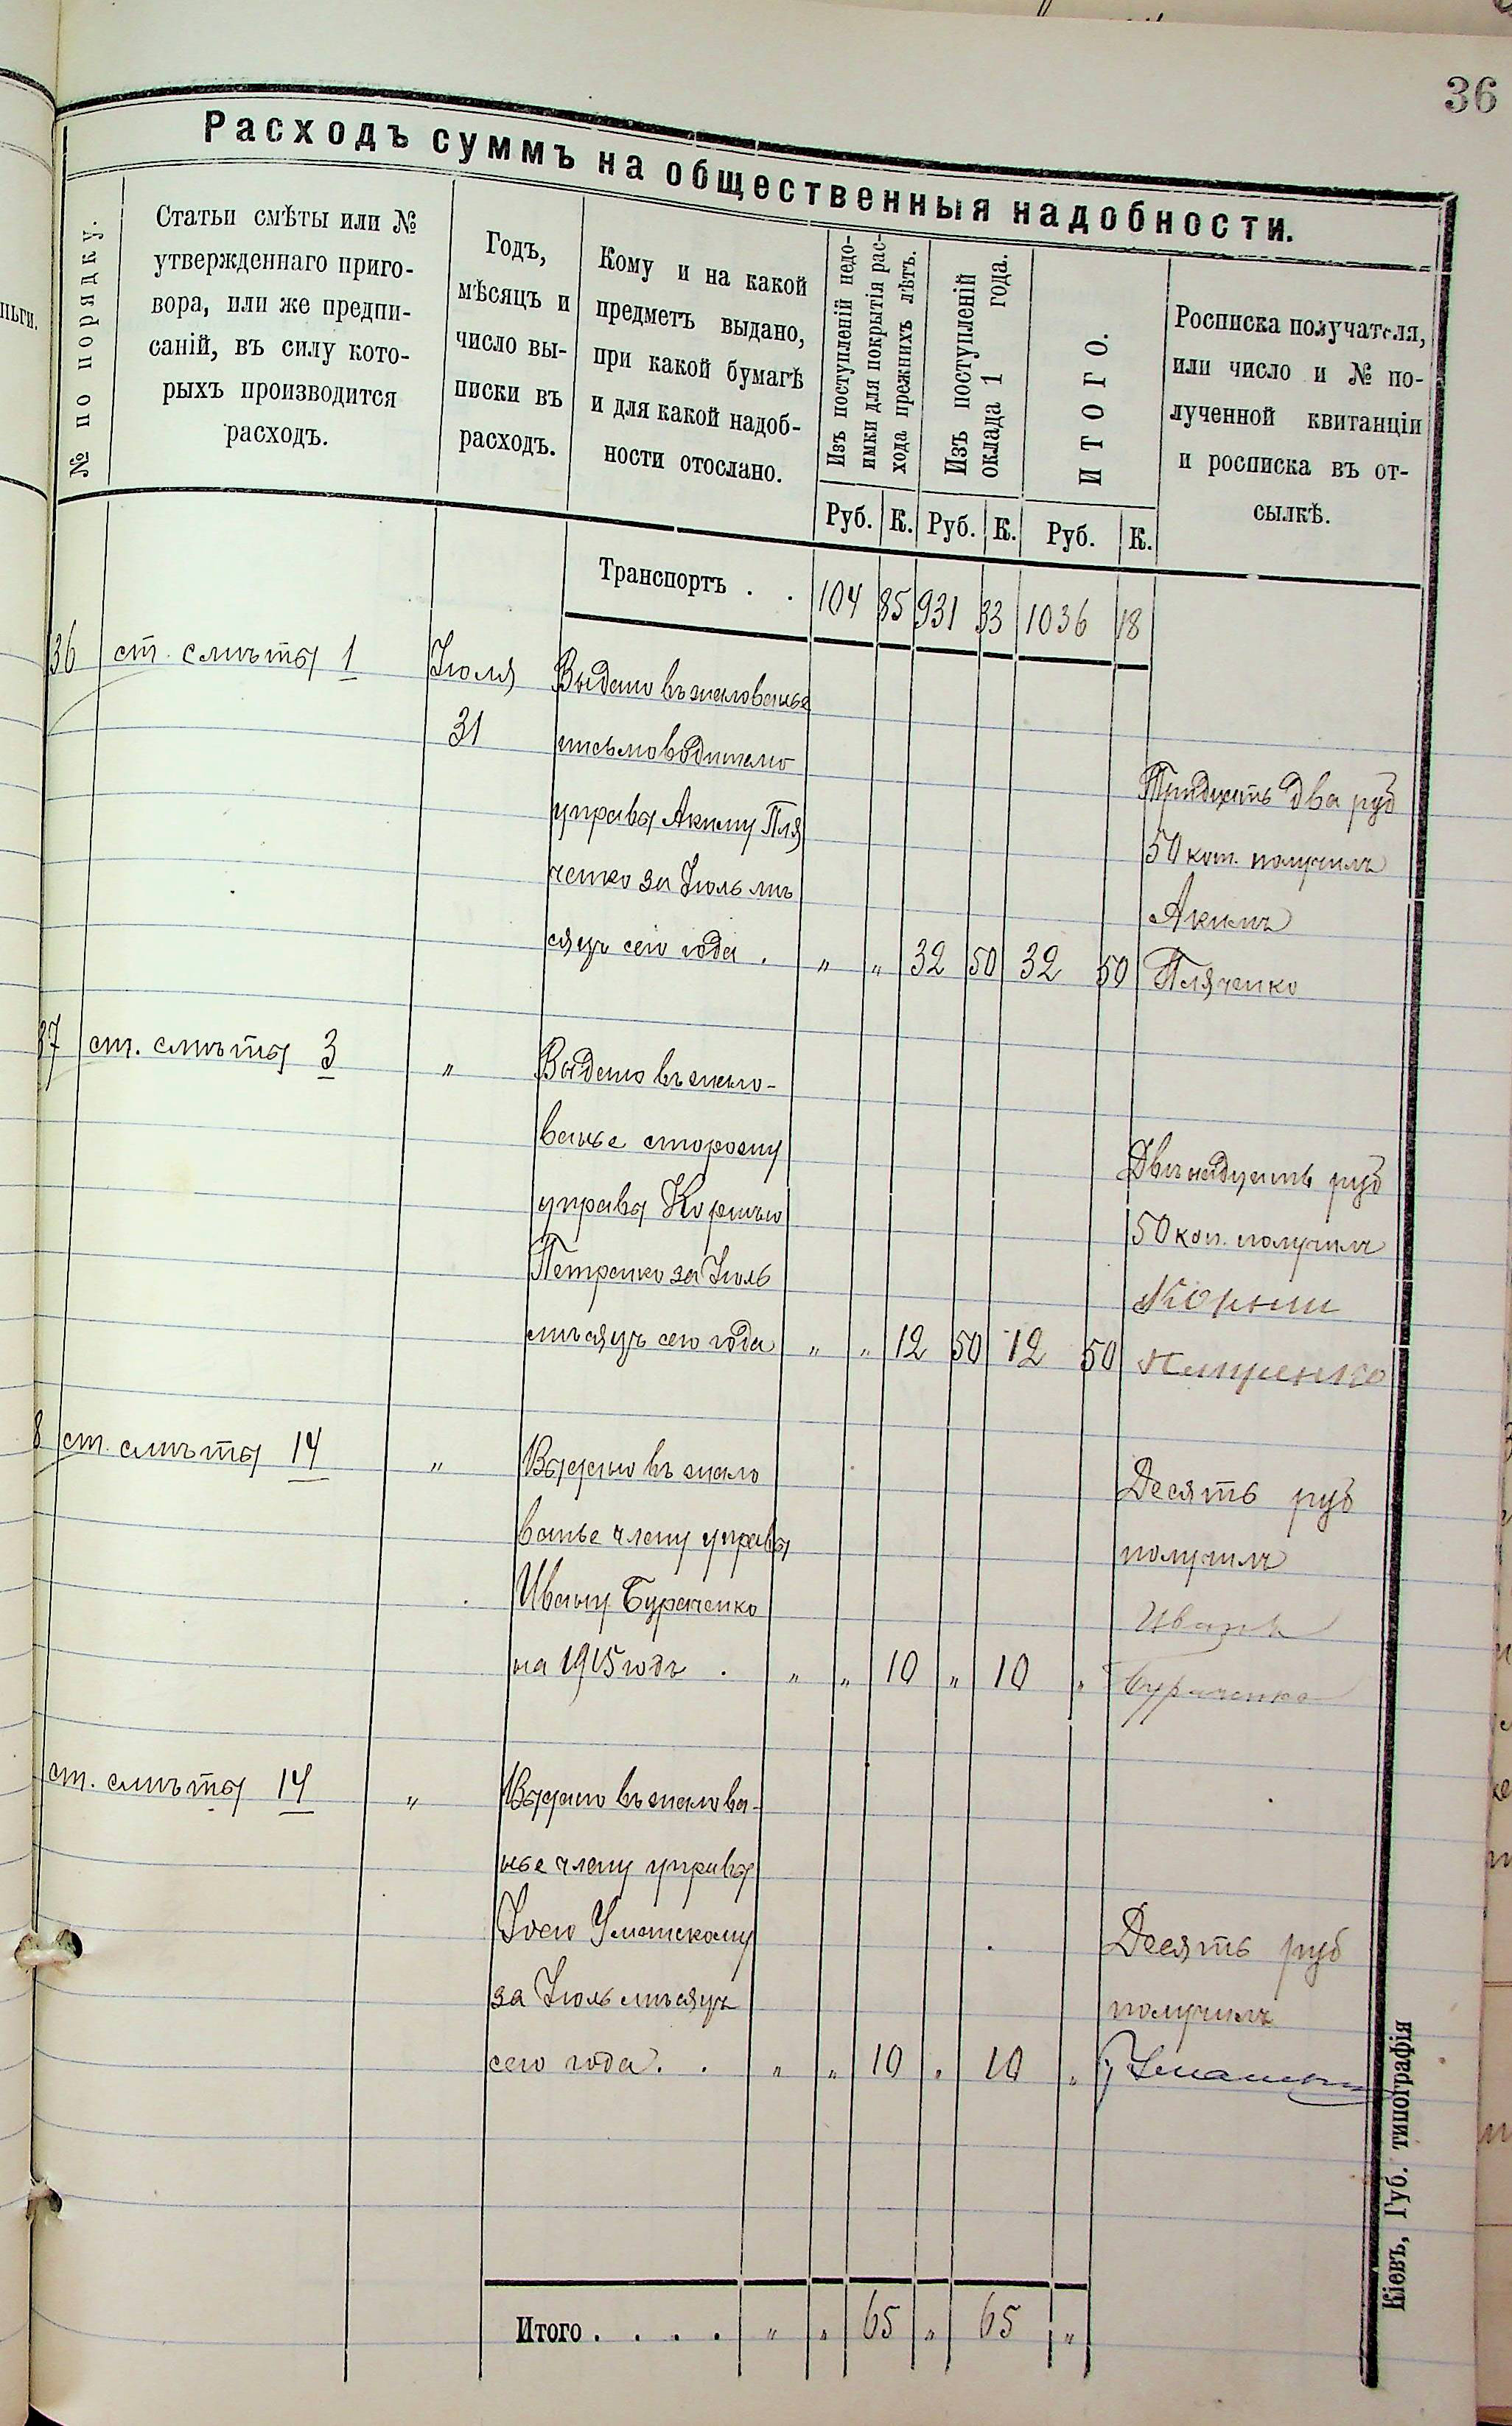 36
Расходъ суммъ на общественныя надобности.
№ по порядку.
Статьи смѣты или №
утвержденнаго приго-
вора, или же предпи-
саній, въ силу кото-
рыхъ производится
расходъ.
Годъ,
мѣсяцъ и
число вы-
писки въ
расходъ.
Кому и на какой
предметъ выдано,
при какой бумагѣ
и для какой надоб-
ности отослано.
Изъ поступленій недо-
имки для покрытія рас-
хода прежнихъ лѣтъ.
Изъ поступленій
оклада 1 года.
ИТОГО.
Росписка получателя,
или число и № по-
лученной квитанціи
и росписка въ от-
сылкѣ.
Руб. К. Руб. К. Руб. К.
Транспортъ . . 104 85 931 33 1036 18
36 ст. смѣты 1 Іюля Выдано въ жалованье
31 письмоводителю
Тридцать два руб
управы Акиму Пля
50 коп. получилъ
ченко за Іюль мѣ
Акимъ
сяцъ сего года . „ „ 32 50 32 50 Пляченко
37 ст. смѣты 3 „ Выдано въ жало-
ванье сторожу
Двѣнадцать руб
управы Корнѣю
50 коп. получилъ
Петренко за Іюль
Корнии
мѣсяцъ сего года „ „ 12 50 12 50 Петренко
8 ст. смѣты 14 „ Выдано въ жало
Десять руб
ванье члену управы
получилъ
Ивану Бураченко
Иванъ
на 1915 годъ . „ „ 10 „ 10 „ Бураченко
ст. смѣты 14 „ Выдано въ жалова-
нье члену управы
Іосю Уманскому
Десять руб
за Іюль мѣсяцъ
получилъ
сего года . . „ „ 10 „ 10 „ Уманскій
Итого . . . . „ „ 65 „ 65 „
Кіевъ, Губ. типографія
ньги.